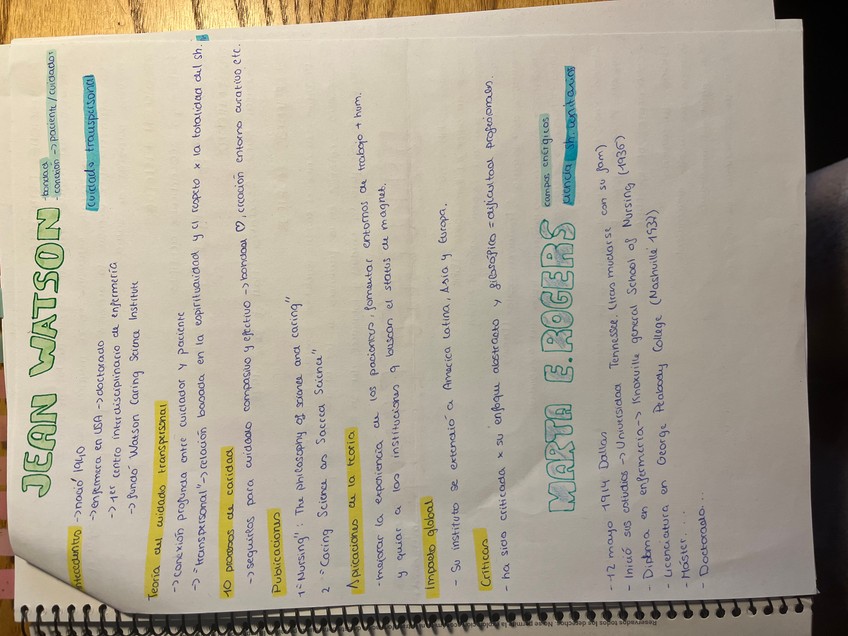 JEAN WATSON
- bondad
- conexión → paciente/cuidador
cuidado transpersonal
Antecedentes → nació 1940
→ enfermera en USA → doctorado
→ 1er centro interdisciplinario de enfermería
→ fundó Watson Caring Science Institute
Teoría del cuidado transpersonal
→ conexión profunda entre cuidador y paciente
→ "transpersonal" → relación basada en la espiritualidad y el respeto x la totalidad del sh.
10 procesos de caridad
→ seguirlos para cuidado compasivo y efectivo → bondad ♡, creación entorno curativo etc.
Publicaciones
1= "Nursing": The philosophy of science and caring"
2 = "Caring Science as Sacred Science"
Aplicaciones de la teoría
- mejorar la experiencia de los pacientes, fomentar entornos de trabajo + hum.
y guiar a las instituciones q buscan el status de magnet.
Impacto global
- Su instituto se extendió a America Latina, Asia y Europa.
Críticas
- ha sido criticada x su enfoque abstracto y filosófico = dificultad profesionales.
MARTA E. ROGERS
campos energéticos
ciencia sh. unitarios
- 12 mayo 1914 Dallas
- Inició sus estudios → Universidad Tennessee. (tras mudarse con su fam)
- Diploma en enfermería → Knoxville general School of Nursing (1936)
- Licenciatura en George Peabody College (Nashville 1937)
- Máster...
- Doctorado...
Reservados todos los derechos.